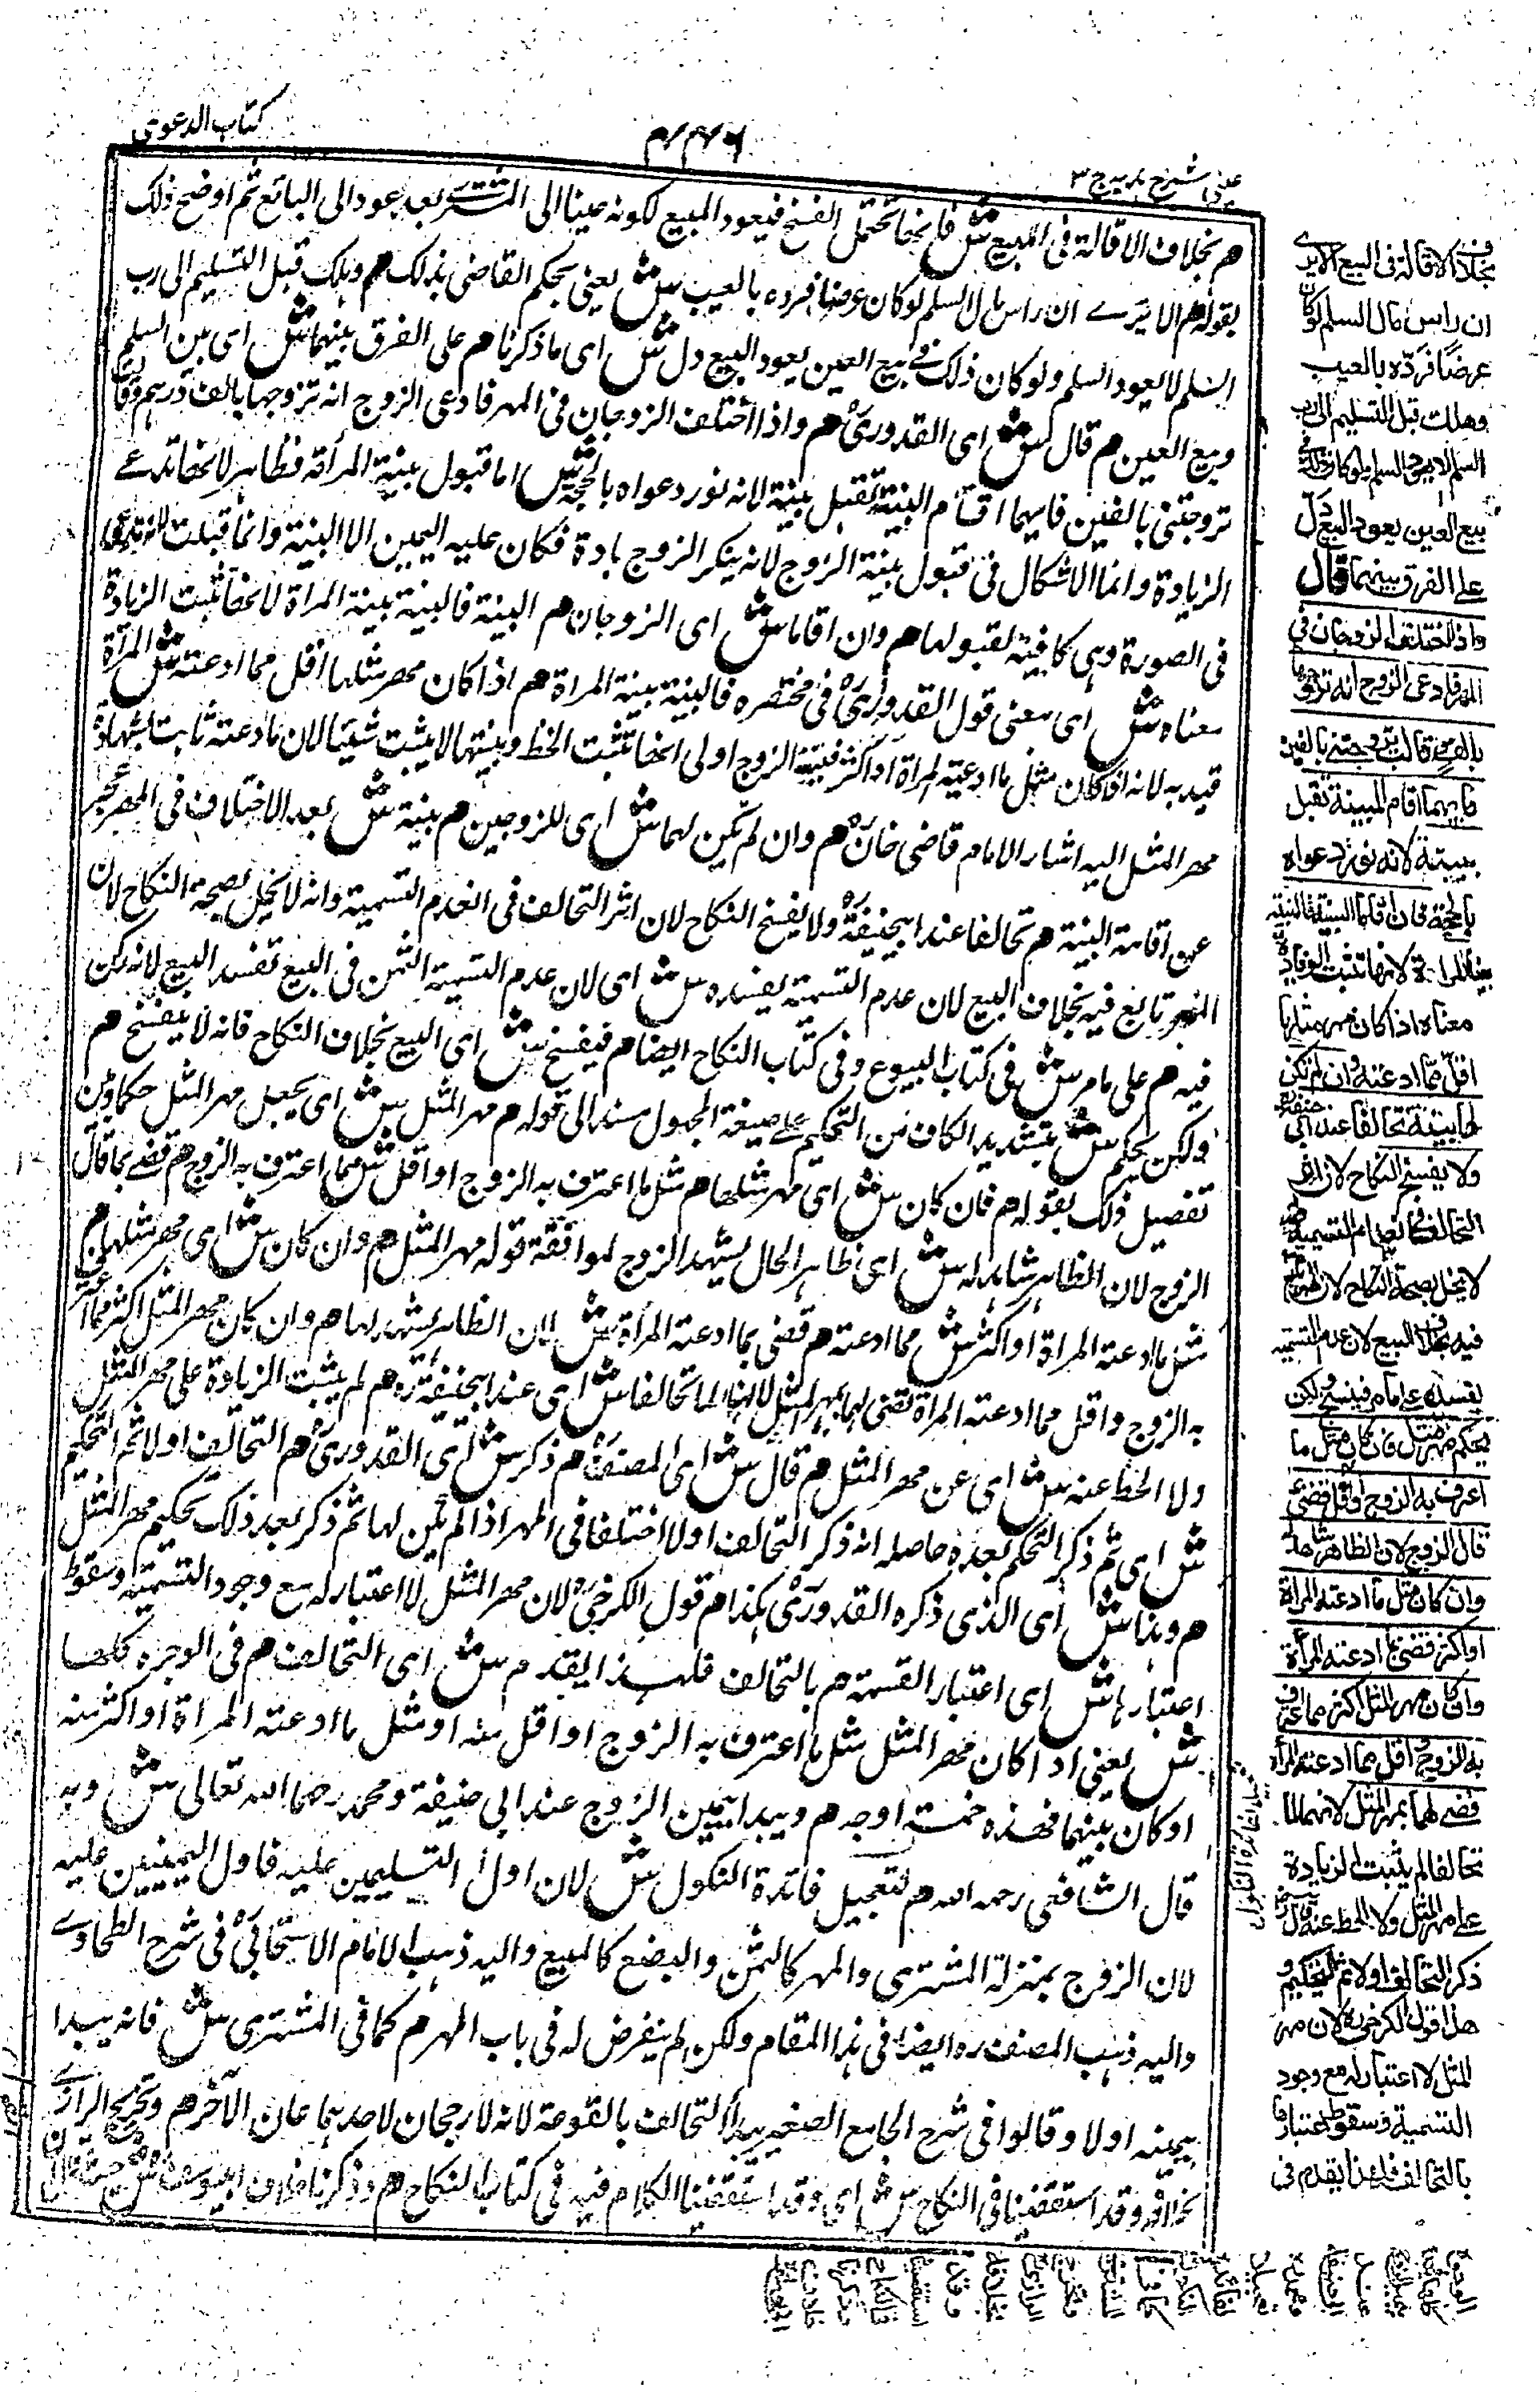 كتاب الدعوى
عينى شرح هديه ج ٣
هم بخلاف الاقالة فى البيع ش فانها تحتمل الفسخ فيعود المبيع لكونه عينا الى المشترے بعد عودالى البائع ثم اوضح ذلك
بقوله هم الا يرے ان راس مال السلم لو كان عرضا فرده بالعيب ش يعنى بحكم القاضى بذلك هم وهلك قبل التسليم الى رب
السلم لا يعود السلم ولو كان ذلك فے بيع العين يعود البيع دل ش اى ما ذكرنا هم على الفرق بينهما ش اى بين السلم
وبيع العين هم قال ش اى القدورىؒ هم واذا اختلف الزوجان فى المهر فادعى الزوج انه تزوجها بالف درهم وقالت
تزوجتنى بالفين فايهما اقام البينة تقبل بينته لانه نور دعواه بالحجة ش اما قبول بينة المرأة فظاهر لانها تدعے
الزيادة وانما الاشكال فى قبول بينة الزوج لانه ينكر الزوج يادة فكان عليه اليمين الا البينة وانما قبلت لانه يدعى
فى الصورة وهى كافية لقبولها هم وان اقاما ش اى الزوجان هم البينة فالبينة بينة المراة لانها تثبت الزيادة
معناه ش اى معنى قول القدورىؒ فى مختصره فالبينة بينة المراة هم اذا كان مهر مثلها اقل مما ادعته ش المرأة
قيد به لانه لو كان مثل ما ادعته المراة او اكثر فبينة الزوج اولى انها تثبت الحظ وبينتها لا يثبت شيئا لان ما ادعته ثابت بشهادة
مهر المثل اليه اشار الامام قاضى خانؒ هم وان لم يكن لهما ش اى للزوجين هم بينة ش بعد الاختلاف فى المهر عجز
عن اقامة البينة هم تحالفا عند ابيحنيفةؒ ولا يفسخ النكاح لان اثر التحالف فى انعدم التسمية وانه لا يخل بصحة النكاح لان
المهر تابع فيه بخلاف البيع لان عدم التسمية يفسده ش اى لان عدم التسمية الثمن فى البيع تفسد البيع لانه ركن
فيه هم على ما مر ش فى كتاب البيوع وفى كتاب النكاح ايضا هم فيفسخ ش اى البيع بخلاف النكاح فانه لا ينفسخ هم
ولكن يحكم ش بتشديد الكاف من التحكيم علے صيغة المجهول مسند الى قوله هم مهر المثل ش اى يجعل مهر المثل حكما وبين
تفصيل ذلك بقوله هم فان كان ش اى مهر مثلها هم مثل ما اعترف به الزوج او اقل ش مما اعترف به الزوج هم قضے بما قال
الزوج لان الظاهر شاهد له ش اى ظاهر الحال يشهد الزوج لموافقة قوله مهر المثل هم وان كان ش اى مهر مثلها هم
مثل ما ادعته المراة او اكثر ش مما ادعته هم قضى بما ادعته المرأة ش لان الظاهر يشهد لها هم وان كان مهر المثل اكثر مما اعترف
به الزوج واقل مما ادعته المراة تقضى لها بمهر المثل لانهما لما تحالفا ش اى عند ابيحنيفةؒ هم لم يثبت الزيادة على مهر المثل
ولا الحظ عنه ش اى عن مهر المثل هم قال ش اى المصنفؒ هم ذكر ش اى القدورىؒ هم التحالف اولا ثم التحكيم
ش اى ثم ذكر التحكم بعده حاصله انه ذكر التحالف اولا اختلفا فى المهر اذا لم يكن لهما ثم ذكر بعد ذلك تحكيم مهر المثل
هم وهذا ش اى الذى ذكره القدورىؒ هكذا هم قول الكرخىؒ لان مهر المثل لا اعتبار له مع وجود التسمية وسقوط
اعتبارها ش اى اعتبار القسمة هم بالتحالف فلهذا يقدم هم ش اى التحالف هم فى الوجوه كلها
ش يعنى اذا كان مهر المثل مثل ما اعترف به الزوج او اقل منه او مثل ما ادعته المراة او اكثر منه
او كان بينهما فهذه خمسة اوجه هم ويبدا بيمين الزوج عند ابى حنيفة ومحمد رحمها الله تعالى ش وبه
قال الشافعى رحمه الله هم لتعجيل فائدة النكول ش لان اول التسليمين عليه فاول اليمينين عليه
لان الزوج بمنزلة المشترى والمهر كالثمن والبضع كالمبيع واليه ذهب الامام الاسبيجابىؒ فى شرح الطحاوے
واليه ذهب المصنف ره ايضا فى هذا المقام ولكن لم ينفرض له فى باب المهر هم كما فى المشترى ش فانه يبدا
بيمينه اولا وقالوا فى شرح الجامع الصغير يبدأ التحالف بالقرعة لانه لا رجحان لاحدهما على الآخر هم وتخريج الرازے
بخلافه وقد استقصينا فى النكاح ش اى وقد استقصينا الكلام فيه فى كتاب النكاح هم وذكرنا خلاف ابيوسف
بخلاف الاقالة فى البيع الا يرے
ان راس مال السلم لو كان
عرضا فرده بالعيب
وهلك قبل التسليم الى رب
السلم لا يعود السلم ولو كان ذلك فے
بيع العين يعود البيع دل
علے الفرق بينهما قال
واذا اختلف الزوجان فى
المهر فادعى الزوج انه تزوجها
بالف وقالت تزوجتنى بالفين
فايهما اقام البينة تقبل
بينته لانه نور دعواه
بالحجة فان اقاما البينة فالبينة
بينة المراة لانها تثبت الزيادة
معناه اذا كان مهر مثلها
اقل مما ادعته وان لم يكن
لهما بينة تحالفا عند ابى حنيفةؒ
ولا يفسخ النكاح لان اثر
التحالف فى انعدام التسمية وانه
لا يخل بصحة النكاح لان المهر تابع
فيه بخلاف البيع لان عدم التسمية
يفسده علے ما مر فيفسخ ولكن
يحكم مهر المثل فان كان مثل ما
اعترف به الزوج او اقل قضى بما
قال الزوج لان الظاهر شاهد له
وان كان مثل ما ادعته المراة
او اكثر قضى بما ادعته المرأة
وان كان مهر المثل اكثر مما اعترف
به الزوج واقل مما ادعته المرأة
قضى لها بمهر المثل لانهما لما
تحالفا لم يثبت الزيادة
علے مهر المثل ولا الحط عنه قال
ذكر التحالف اولا ثم التحكيم و
هذا قول الكرخىؒ لان مهر
المثل لا اعتبار له مع وجود
التسمية وسقوط اعتبارها
بالتحالف فلهذا يقدم فى